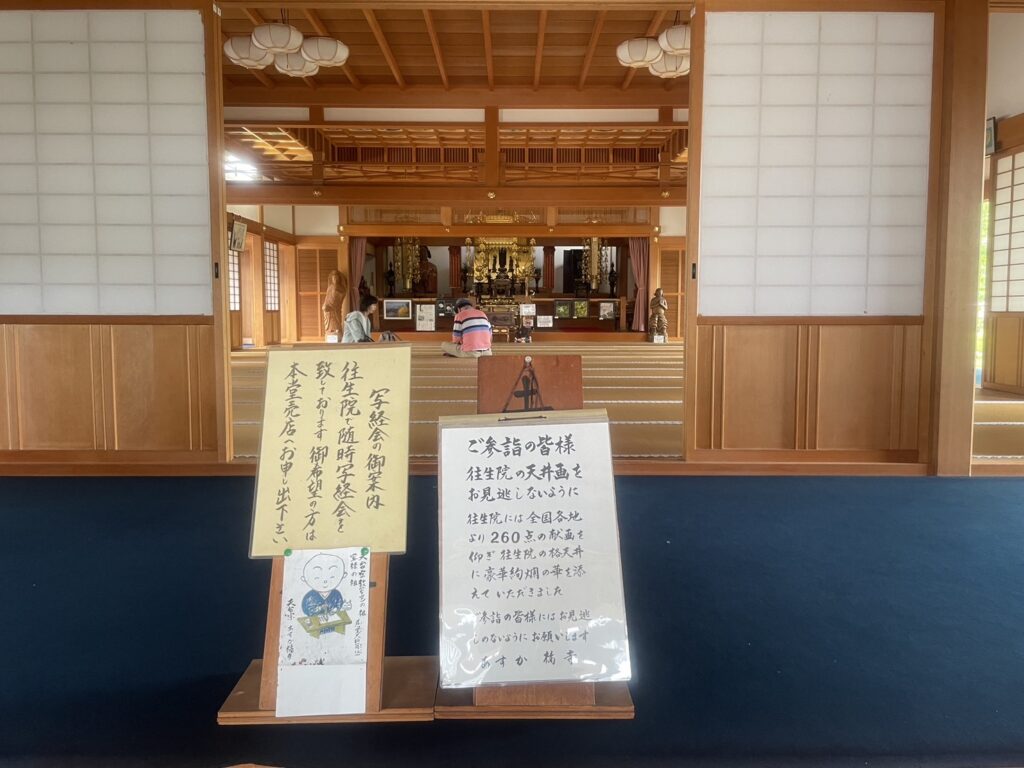 写経会の御案内
往生院で随時写経会を
致しております 御希望の方は
本堂売店へお申し出下さい
ご参詣の皆様
往生院の天井画を
お見逃しないように
往生院には全国各地
より260点の献画を
仰ぎ 往生院の格天井
に豪華絢爛の華を添
えていただきました
ご参詣の皆様にはお見逃
しのないようにお願いします
あすか 橘寺